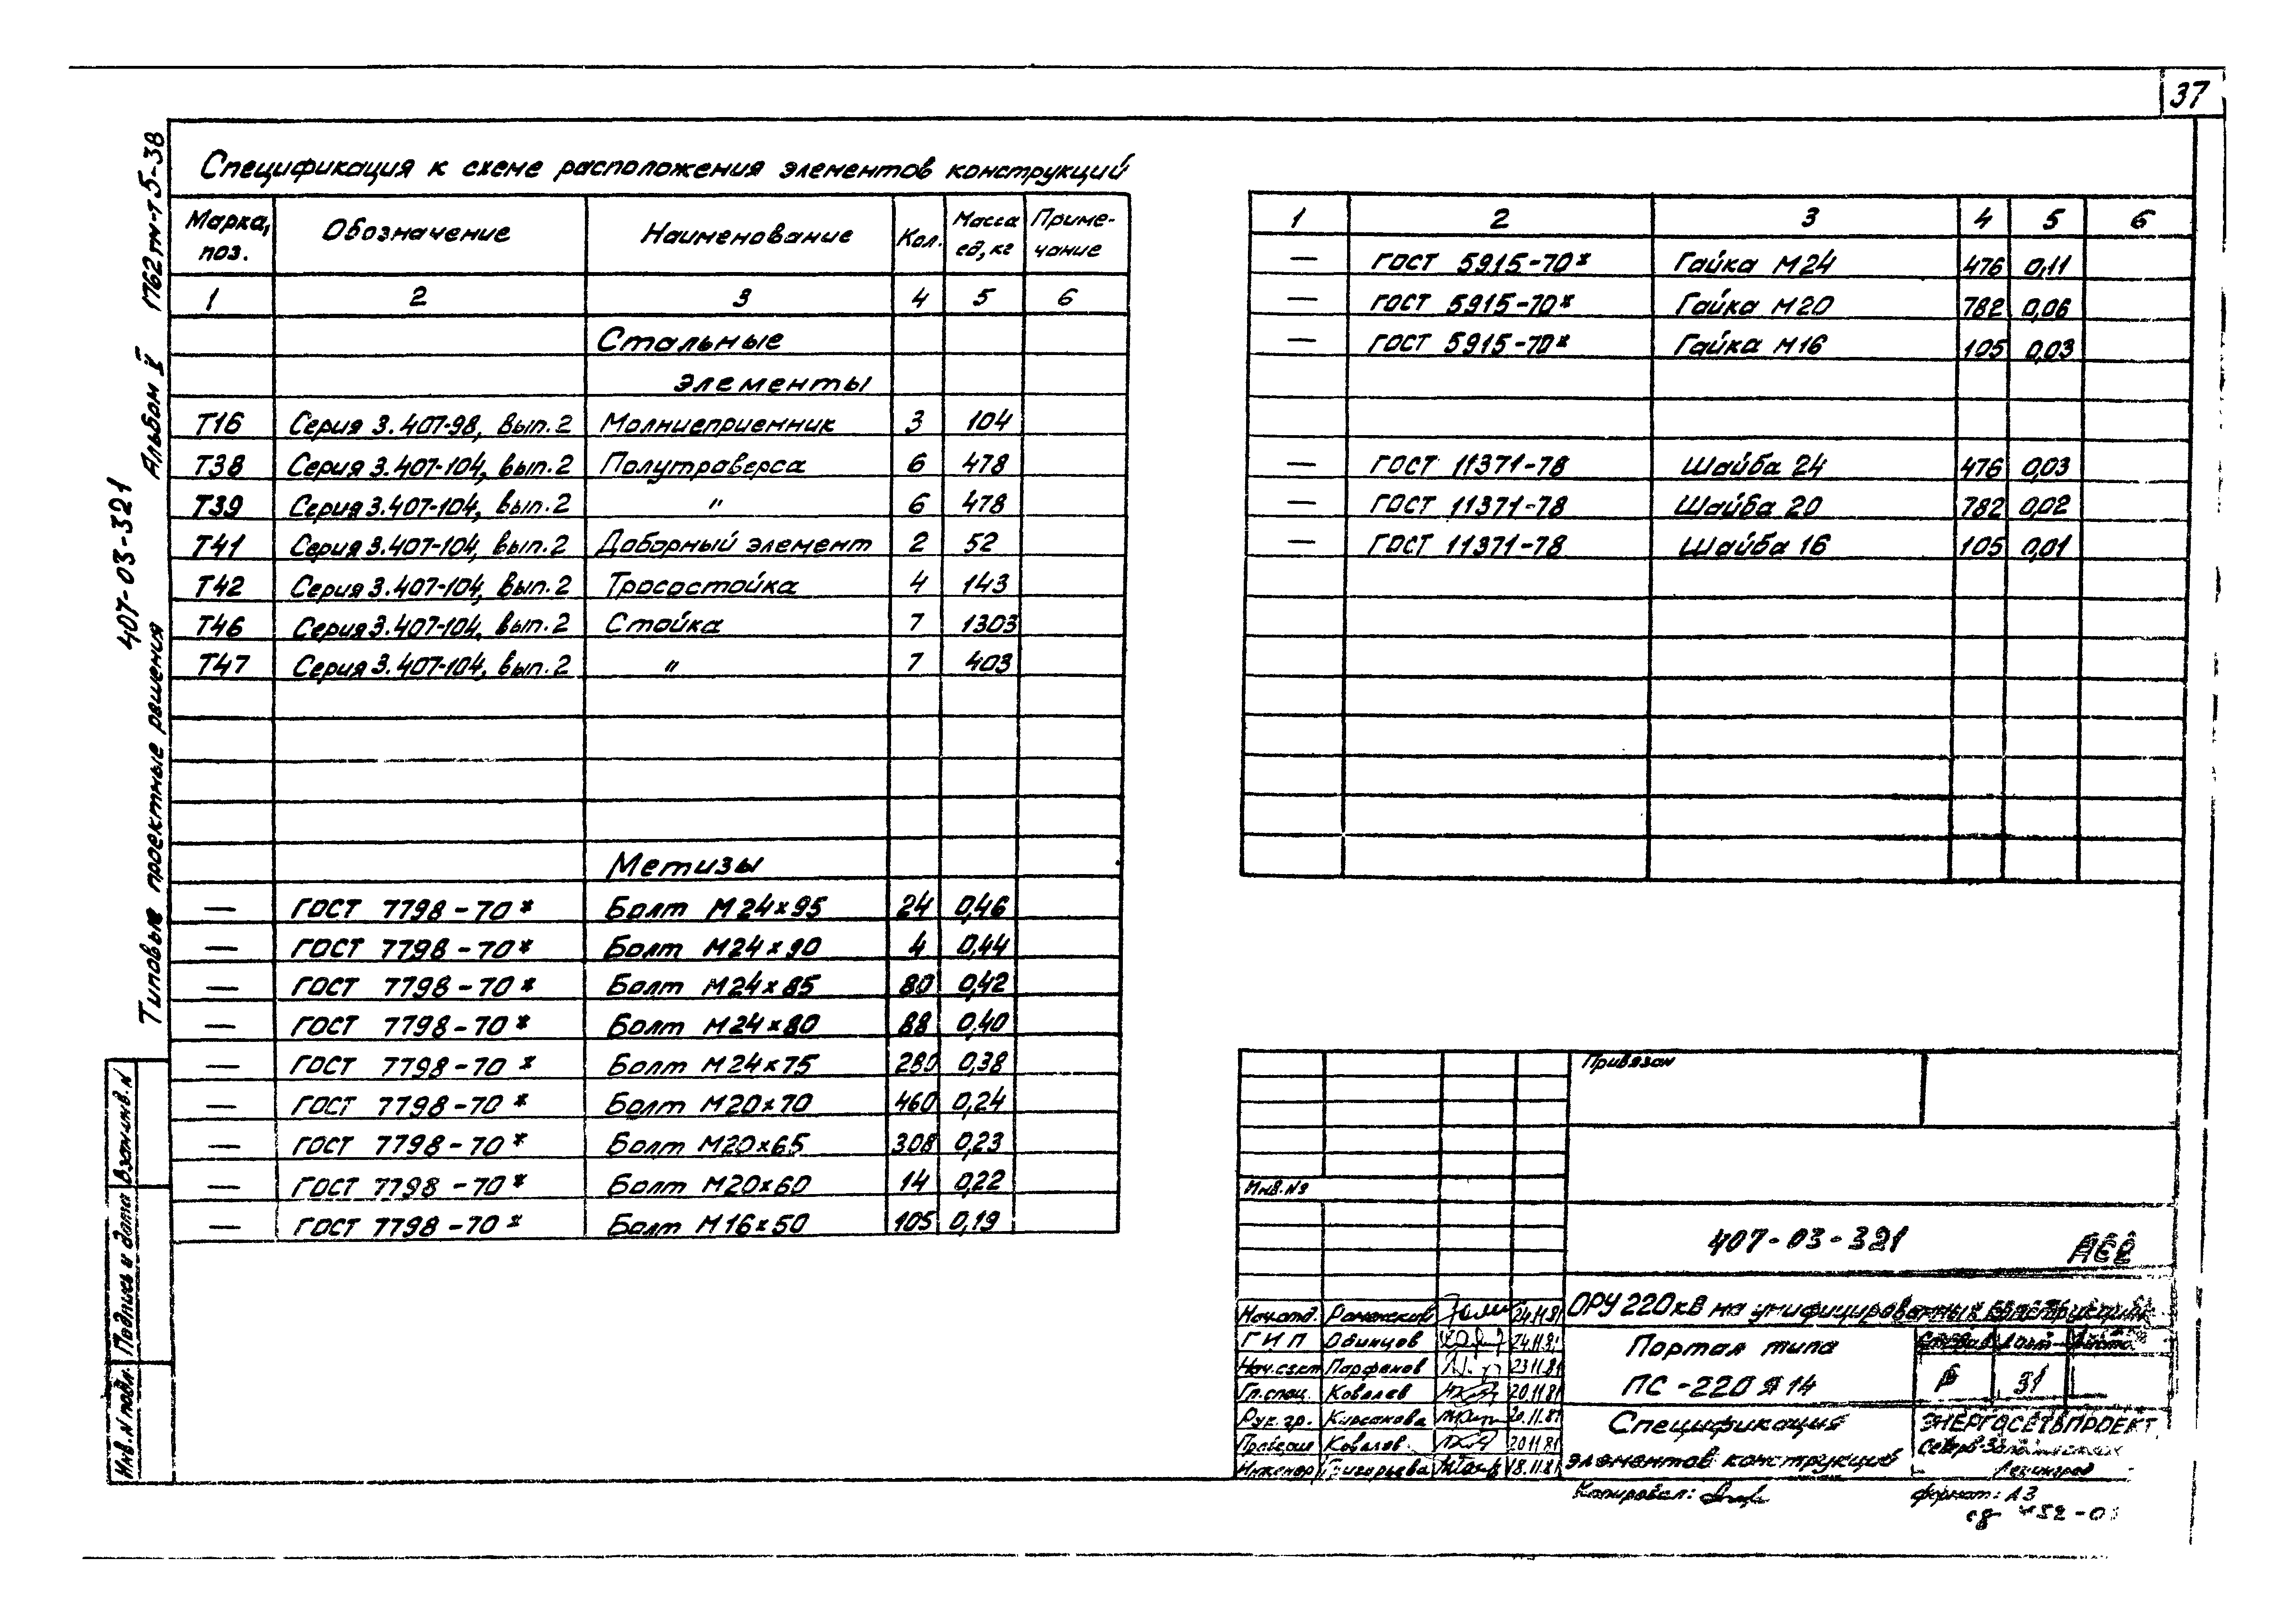 37
1762тм-т5-38
Альбом V
407-03-321
Типовые проектные решения
Спецификация к схеме расположения элементов конструкций
Марка, поз. Обозначение Наименование Кол. Масса ед, кг Приме-чание
1 2 3 4 5 6
Стальные
элементы
Т16 Серия 3.407-98, вып.2 Молниеприемник 3 104
Т38 Серия 3.407-104, вып.2 Полутраверса 6 478
Т39 Серия 3.407-104, вып.2 " 6 478
Т41 Серия 3.407-104, вып.2 Доборный элемент 2 52
Т42 Серия 3.407-104, вып.2 Тросостойка 4 143
Т46 Серия 3.407-104, вып.2 Стойка 7 1303
Т47 Серия 3.407-104, вып.2 " 7 403
Метизы
— ГОСТ 7798-70* Болт М24×95 24 0,46
— ГОСТ 7798-70* Болт М24×90 4 0,44
— ГОСТ 7798-70* Болт М24×85 80 0,42
— ГОСТ 7798-70* Болт М24×80 88 0,40
— ГОСТ 7798-70* Болт М24×75 280 0,38
— ГОСТ 7798-70* Болт М20×70 460 0,24
— ГОСТ 7798-70* Болт М20×65 308 0,23
— ГОСТ 7798-70* Болт М20×60 14 0,22
— ГОСТ 7798-70* Болт М16×50 105 0,19
1 2 3 4 5 6
— ГОСТ 5915-70* Гайка М24 476 0,11
— ГОСТ 5915-70* Гайка М20 782 0,06
— ГОСТ 5915-70* Гайка М16 105 0,03
— ГОСТ 11371-78 Шайба 24 476 0,03
— ГОСТ 11371-78 Шайба 20 782 0,02
— ГОСТ 11371-78 Шайба 16 105 0,01
Взам.инв.N
Подпись и дата
Инв.N подл.
Привязан
Инв.№
407-03-321 АС2
ОРУ 220кВ на унифицированных конструкциях
Нач.отд. Роменсков 24.11.81
ГИП Одинцов 24.11.81
Нач.сект Парфенов 23.11.81
Гл.спец. Ковалев 20.11.81
Рук.гр. Кирсанова 20.11.81
Ковалев 20.11.81
Инженер Григорьева 18.11.81
Портал типа
ПС-220Я14
Стадия Лист Листов
Р 31
Спецификация
элементов конструкций
ЭНЕРГОСЕТЬПРОЕКТ
Северо-Западное
Ленинград
Копировал:
формат: А3